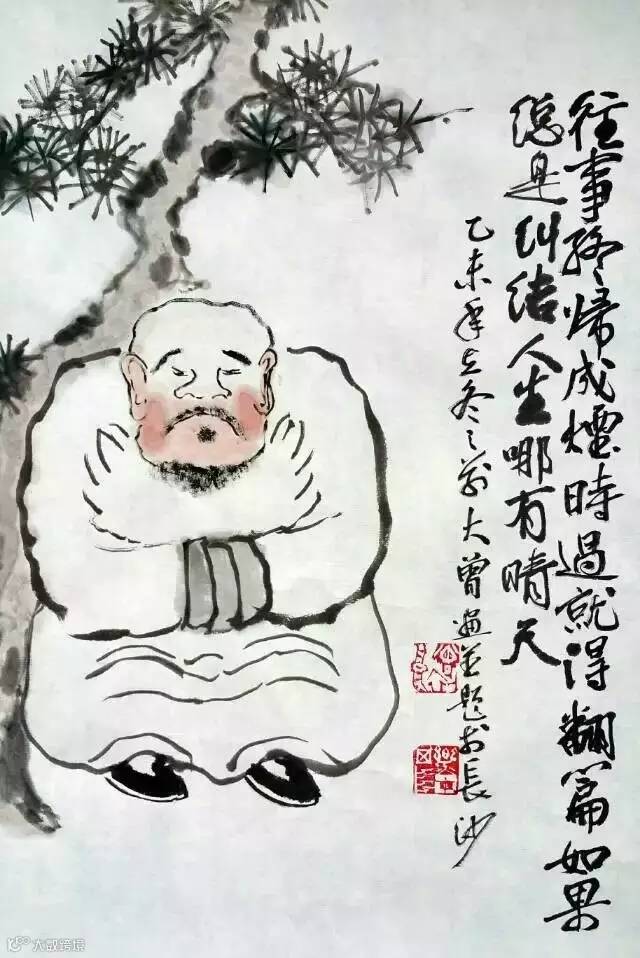 往事終歸成煙時過就得翻篇如果
總是糾结人生哪有晴天
乙未年立冬之前大曾画並題於長沙
大数跨境